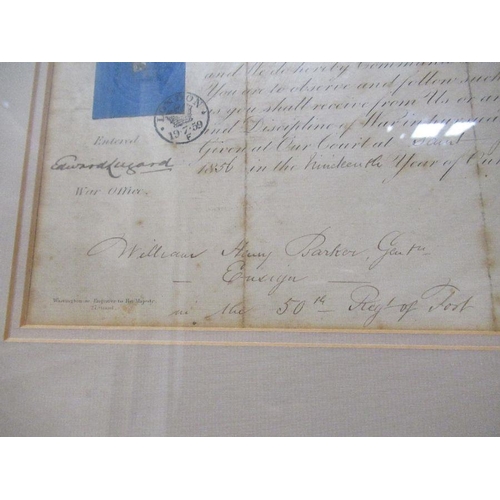 and We do hereby Command
You are to observe and follow such
as you shall receive from Us or an
and Discipline of War in
Given at Our Court at
in the Nineteenth Year of Our
LONDON
19.7.59
F
Entered
Edward Lugard
War Office
William Henry Barker, Gentn
— Ensign —
in the 50th Regt of Foot